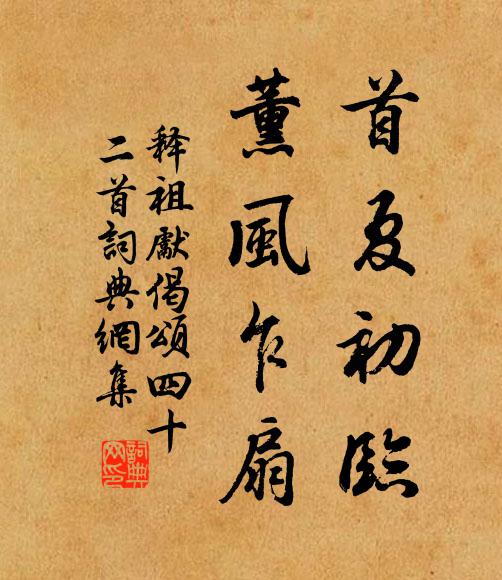 首夏初臨
薰風乍扇
释祖獻偈頌四十
二首詞典網集
詞典
网印